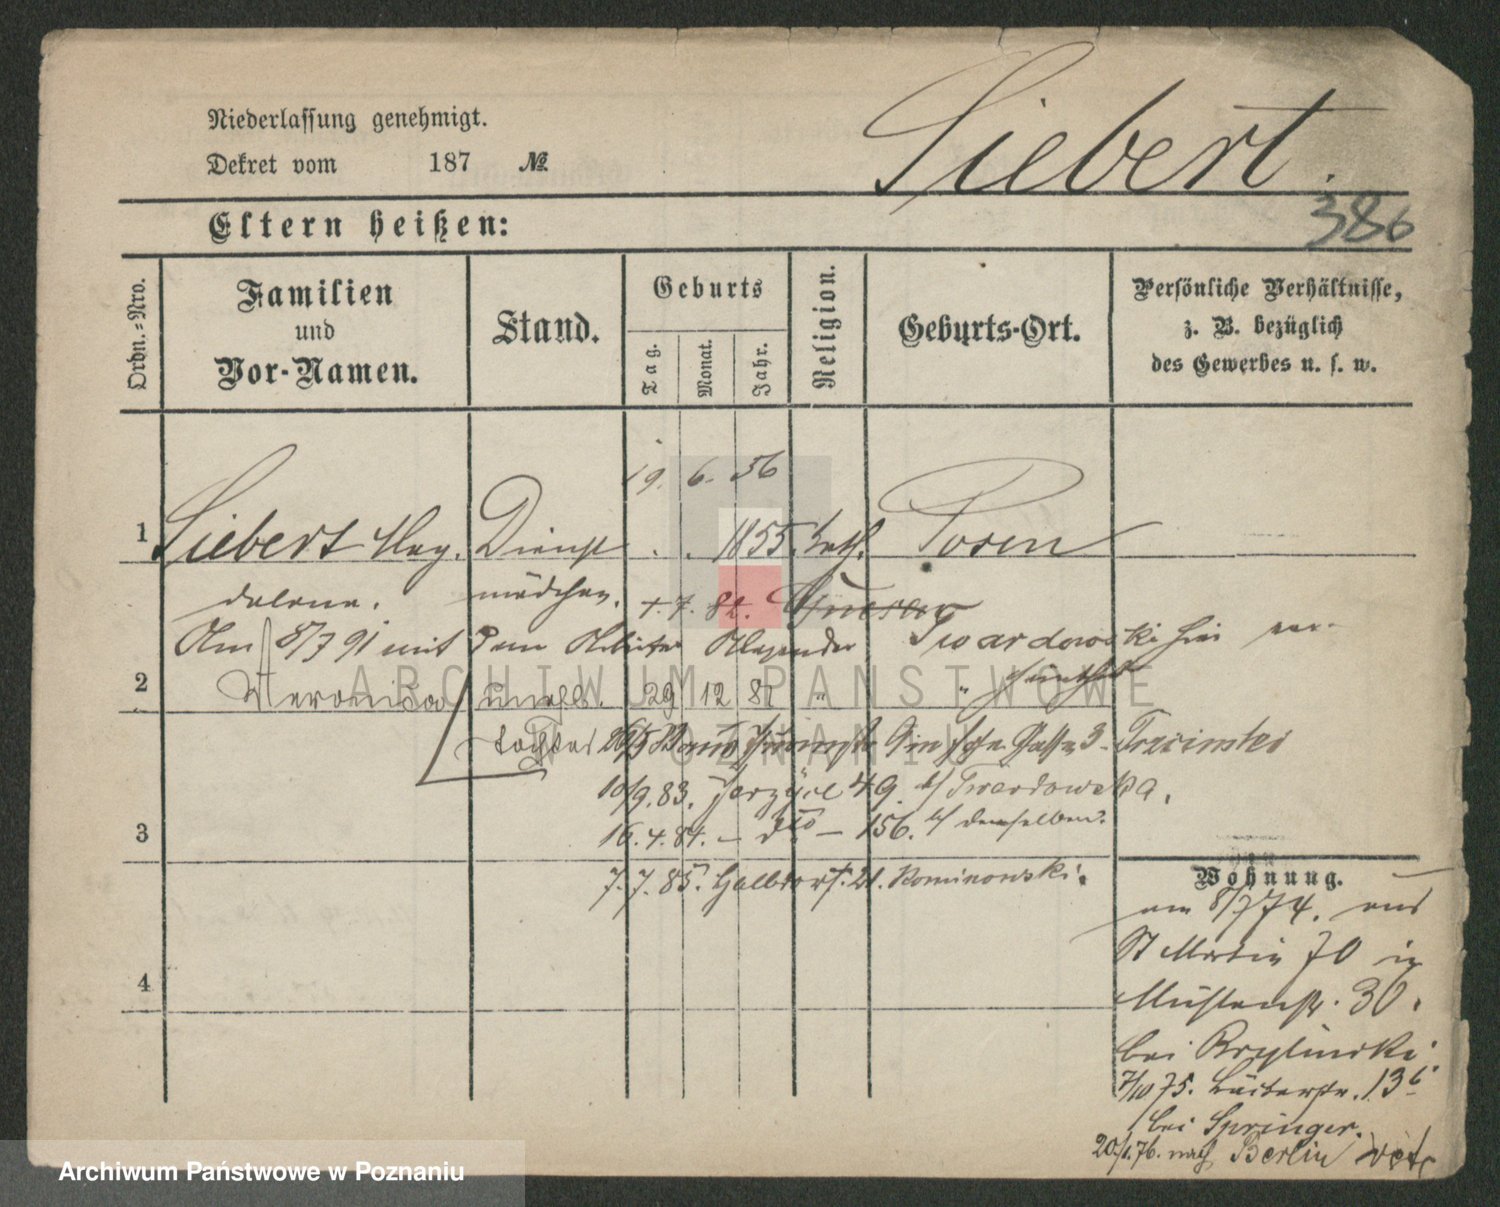 Niederlassung genehmigt.
Dekret vom 187 №
Siebert.
386
Eltern heißen:
Ordn.=Nro.
Familien
und
Vor-Namen.
Stand.
Geburts
Tag.
Monat.
Jahr.
Religion.
Geburts-Ort.
Persönliche Verhältnisse,
z. B. bezüglich
des Gewerbes u. s. w.
19. 6. 56
1 Siebert Mag. Dienst . . 1855. kath. Posen
dalena. mädchen. 7. 82.
Am 8/7 91 mit dem Arbeiter Alexander Twardowski hier ver-
2 Veronica unehl. 29 12 81 " "
Tochter 3 Trzcinski
10/9.83. Jerzyce 49. b/ Twardowska.
3 16.4.84. – dto – 156. b/ demselben.
7.7.85. Halbdorfstr. 21. Kominowski.
Wohnung.
am 8/7 74. aus
St Martin 70 in
Mühlenstr. 30.
bei
7/10 75. 13
bei Springer.
20/1.76. nach Berlin
4
ARCHIWUM PAŃSTWOWE
W POZNANIU
Archiwum Państwowe w Poznaniu